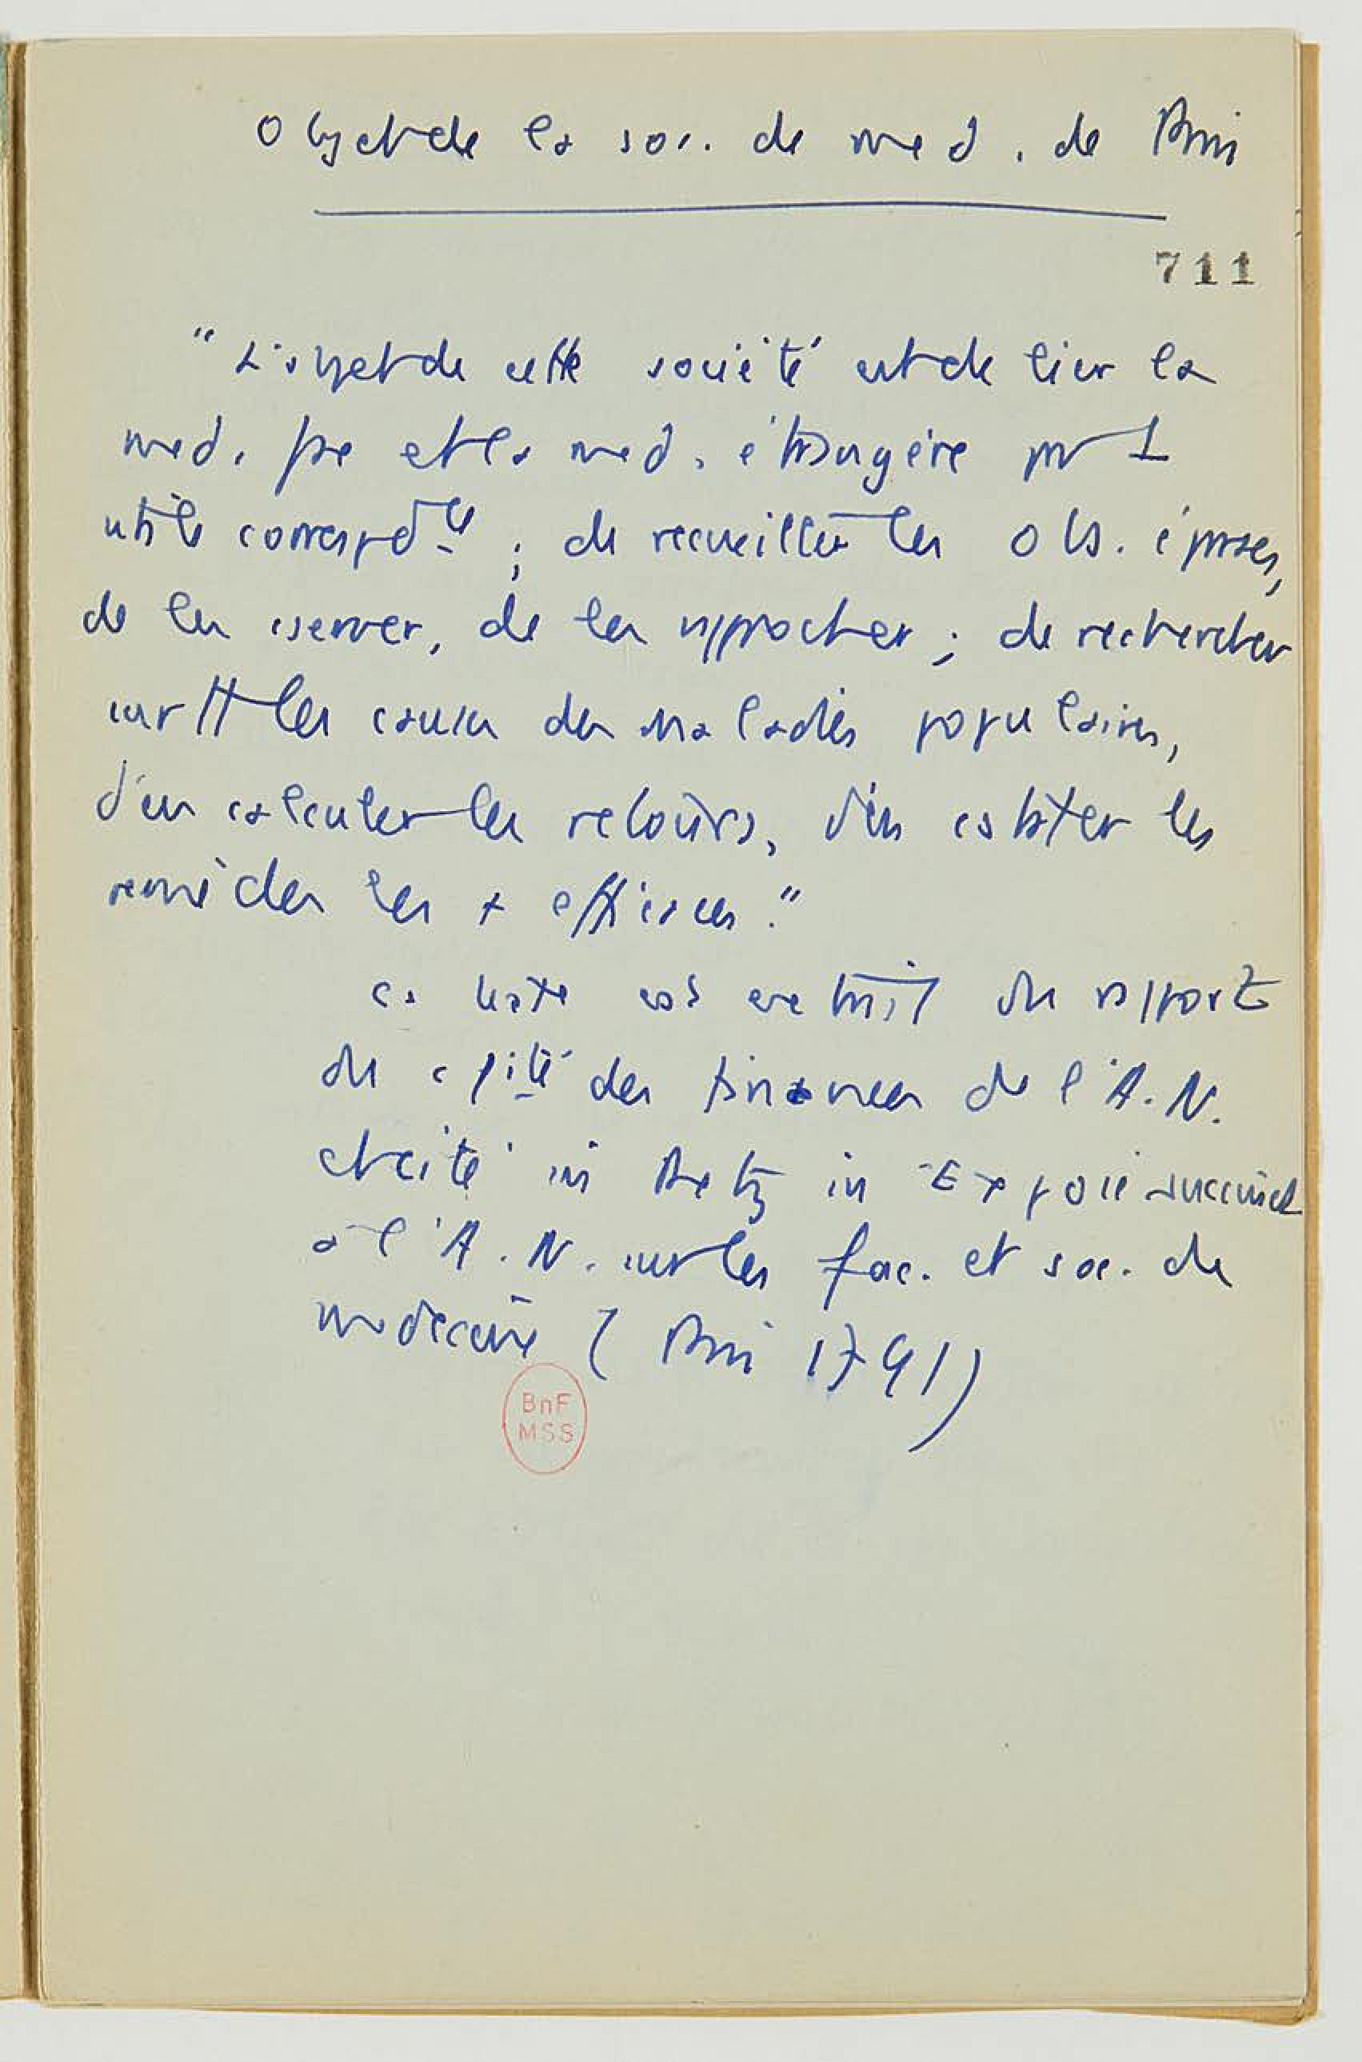 Objet de la soc. de med. de Paris
711
"L'objet de cette société est de lier la
med. fse et la med. étrangère pr 1
utile correspdce ; de recueillir les obs. éparses,
de les cserver, de les rapprocher ; de rechercher
surtt les causes des maladies populaires,
d'en calculer les retours, d'en cstater les
remèdes les + efficaces."
Ce texte est extrait du rapport
du cpité des finances de l'A.N.
et cité in Retz in Exposé succinct
à l'A.N. sur les fac. et soc. de
médecine (Paris 1791)
BnF
MSS